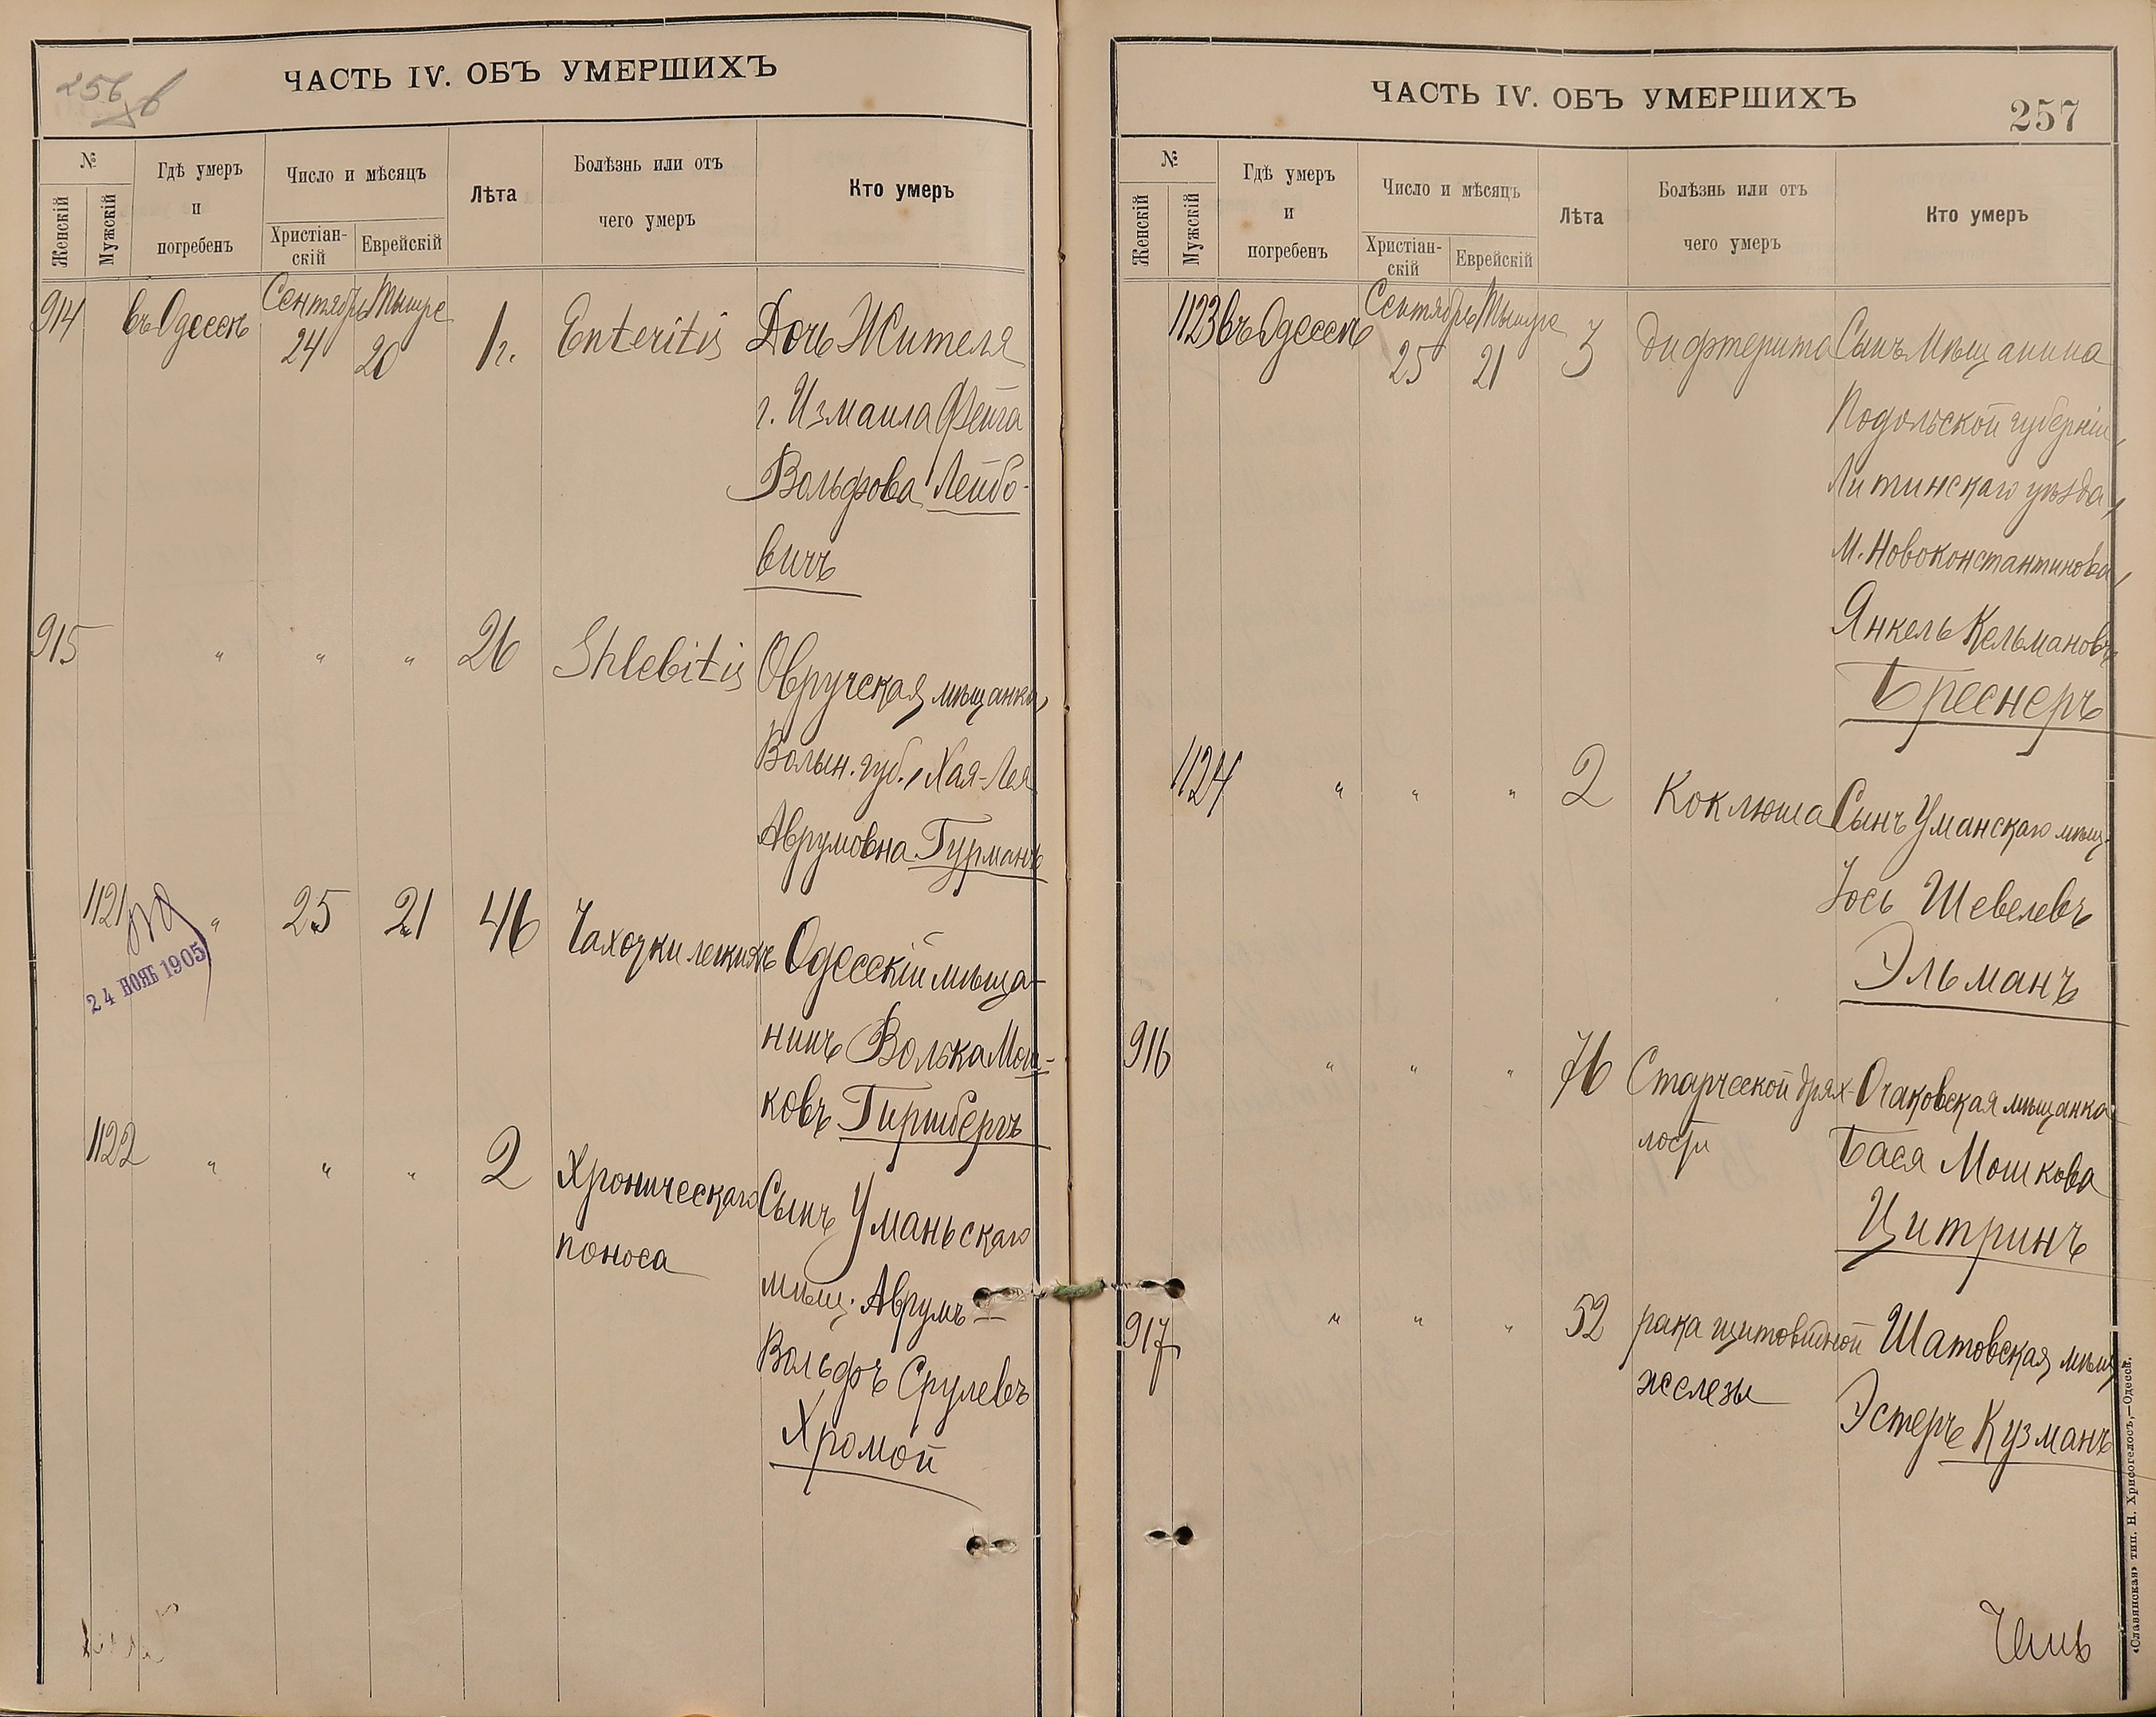 256 в
ЧАСТЬ IV. ОБЪ УМЕРШИХЪ
№
Женскій
Мужскій
Гдѣ умеръ
и
погребенъ
Число и мѣсяцъ
Христіан-
скій
Еврейскій
Лѣта
Болѣзнь или отъ
чего умеръ
Кто умеръ
914 въ Одессѣ Сентябрь 24 Тышре 20 1 г. Enteritis Дочь Жителя
г. Измаила Фейга
Вольфова Лейбо-
вичъ
915 " " " 26 Phlebitis Овручская мѣщанка,
Волын. губ., Хая-Лея
Аврумовна Гурманъ
1121 " 25 21 46 Чахотки легкихъ Одесскій мѣща-
нинъ Волька Мош-
ковъ Гиршбергъ
24 НОЯБ 1905
1122 " " " 2 Хроническаго Сынъ Уманьскаго
поноса
мѣщ. Аврумъ-
Вольфъ Срулевъ
Хромой
ЧАСТЬ IV. ОБЪ УМЕРШИХЪ
257
№
Женскій
Мужскій
Гдѣ умеръ
и
погребенъ
Число и мѣсяцъ
Христіан-
скій
Еврейскій
Лѣта
Болѣзнь или отъ
чего умеръ
Кто умеръ
1123 въ Одессѣ Сентябрь 25 Тышре 21 3 дифтерита Сынъ Мѣщанина
Подольской губерніи,
Литинскаго уѣзда,
м. Новоконстантинова,
Янкель Кельмановъ
Бреснеръ
1124 " " " 2 Коклюша Сынъ Уманскаго мѣщ.
Іось Шевелевъ
Эльманъ
916 " " " 76 Старческой дрях- Очаковская мѣщанка
лости Бася Мошкова
Цитринъ
917 " " " 52 рака щитовидной Шатовская мѣщ.
железы Эстеръ Кузманъ
«Славянская» тип. Н. Хрисогелосъ,—Одесса.